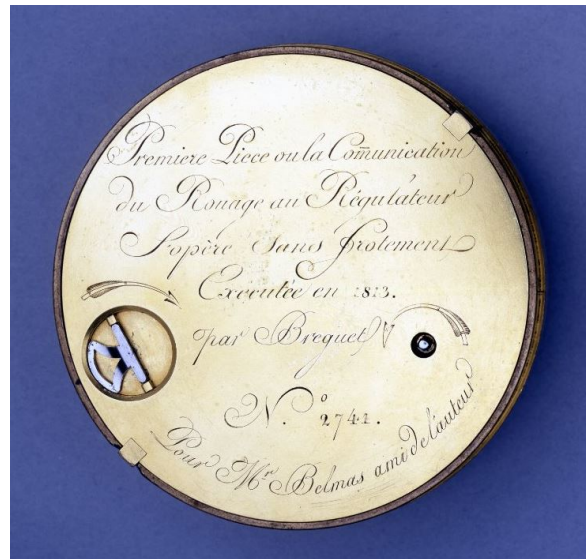 Premiere Piece ou la Com̄unication
du Rouage au Régulateur
S'opère Sans frotement
Exécutée en 1813.
par Breguet
N.o 2741.
Pour Mr. Belmas ami de l'auteur